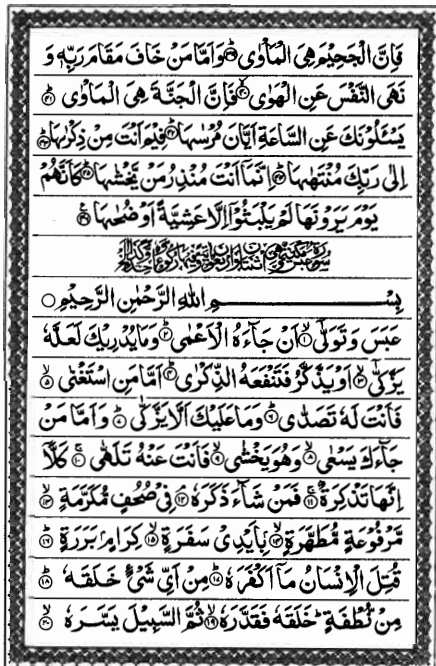 فَاِنَّ الْجَحِيْمَ هِيَ الْمَاْوٰى ۳۹ وَاَمَّا مَنْ خَافَ مَقَامَ رَبِّهٖ وَ
نَهَى النَّفْسَ عَنِ الْهَوٰى ۴۰ فَاِنَّ الْجَنَّةَ هِيَ الْمَاْوٰى ۴۱
يَسْـَٔلُوْنَكَ عَنِ السَّاعَةِ اَيَّانَ مُرْسٰىهَا ۴۲ فِيْمَ اَنْتَ مِنْ ذِكْرٰىهَا ۴۳
اِلٰى رَبِّكَ مُنْتَهٰىهَا ۴۴ اِنَّمَآ اَنْتَ مُنْذِرُ مَنْ يَّخْشٰىهَا ۴۵ كَاَنَّهُمْ
يَوْمَ يَرَوْنَهَا لَمْ يَلْبَثُوْٓا اِلَّا عَشِيَّةً اَوْ ضُحٰىهَا ۴۶
سورة عبس مكية وهي اثنتان واربعون آية وفيها ركوع واحد
بِسْمِ اللهِ الرَّحْمٰنِ الرَّحِيْمِ
عَبَسَ وَتَوَلّٰىٓ ۱ اَنْ جَآءَهُ الْاَعْمٰى ۲ وَمَا يُدْرِيْكَ لَعَلَّهٗ
يَزَّكّٰىٓ ۳ اَوْ يَذَّكَّرُ فَتَنْفَعَهُ الذِّكْرٰى ۴ اَمَّا مَنِ اسْتَغْنٰى ۵
فَاَنْتَ لَهٗ تَصَدّٰى ۶ وَمَا عَلَيْكَ اَلَّا يَزَّكّٰى ۷ وَاَمَّا مَنْ
جَآءَكَ يَسْعٰى ۸ وَهُوَ يَخْشٰى ۹ فَاَنْتَ عَنْهُ تَلَهّٰى ۱۰ كَلَّآ
اِنَّهَا تَذْكِرَةٌ ۱۱ فَمَنْ شَآءَ ذَكَرَهٗ ۱۲ فِيْ صُحُفٍ مُّكَرَّمَةٍ ۱۳
مَّرْفُوْعَةٍ مُّطَهَّرَةٍ ۱۴ بِاَيْدِيْ سَفَرَةٍ ۱۵ كِرَامٍۭ بَرَرَةٍ ۱۶
قُتِلَ الْاِنْسَانُ مَآ اَكْفَرَهٗ ۱۷ مِنْ اَيِّ شَيْءٍ خَلَقَهٗ ۱۸
مِنْ نُّطْفَةٍ خَلَقَهٗ فَقَدَّرَهٗ ۱۹ ثُمَّ السَّبِيْلَ يَسَّرَهٗ ۲۰